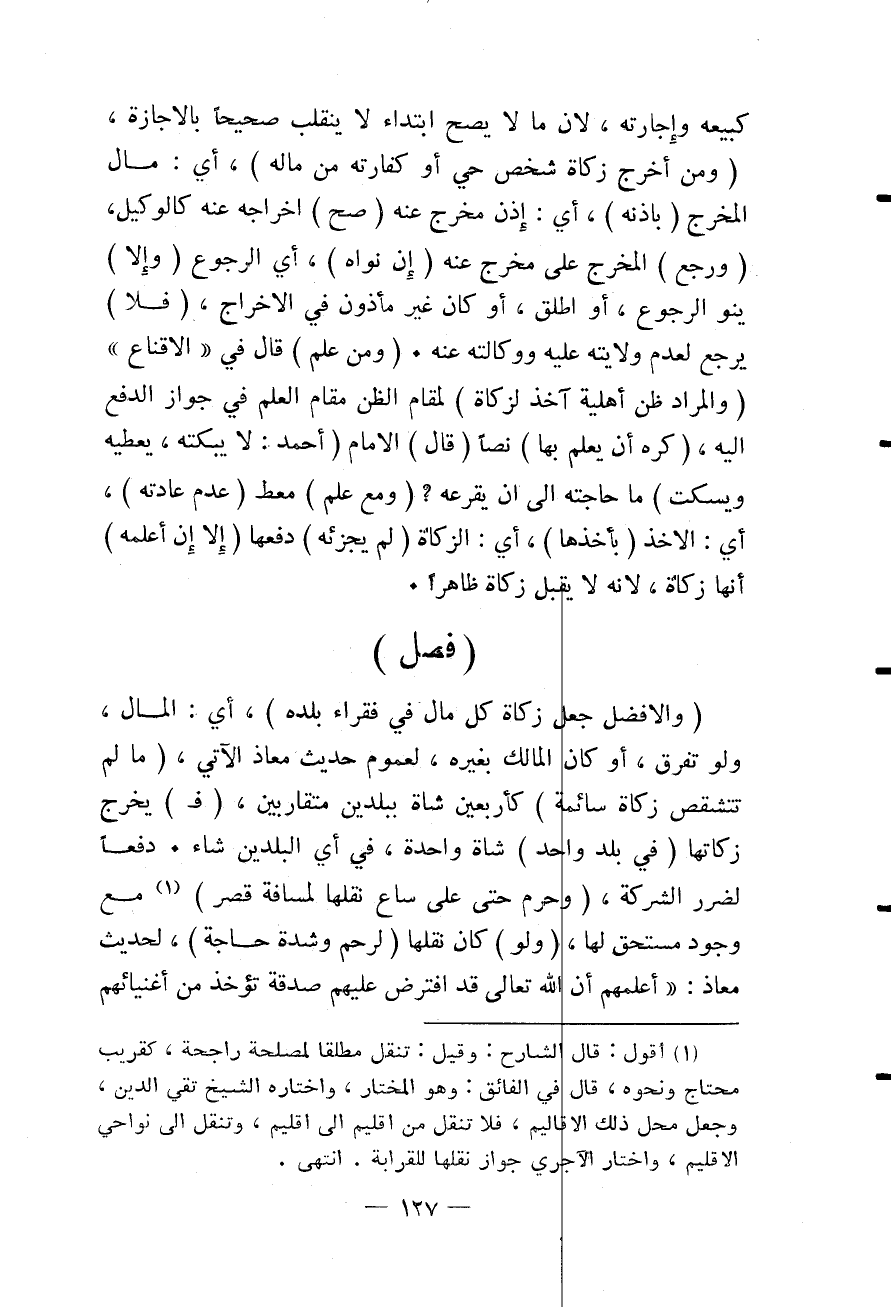 كبيعه وإجارته ، لان ما لا يصح ابتداء لا ينقلب صحيحاً بالاجازة ،
( ومن أخرج زكاة شخص حي أو كفارته من ماله ) ، أي : مـال
المخرج ( باذنه ) ، أي : إذن مخرج عنه ( صح ) اخراجه عنه كالوكيل،
( ورجع ) المخرج على مخرج عنه ( إن نواه ) ، أي الرجوع ( وإلا )
ينو الرجوع ، أو اطلق ، أو كان غير مأذون في الاخراج ، ( فـلا )
يرجع لعدم ولايته عليه ووكالته عنه . ( ومن علم ) قال في « الاقناع »
( والمراد ظن أهلية آخذ لزكاة ) لمقام الظن مقام العلم في جواز الدفع
اليه ، ( كره أن يعلم بها ) نصاً ( قال ) الامام ( أحمد : لا يبكته ، يعطيه
ويسكت ) ما حاجته الى ان يقرعه ? ( ومع علم ) معط ( عدم عادته ) ،
أي : الاخذ ( بأخذها ) ، أي : الزكاة ( لم يجزئه ) دفعها ( إلا إن أعلمه )
أنها زكاة ، لانه لا يقبل زكاة ظاهراً .
( فصل )
( والافضل جعل زكاة كل مال في فقراء بلده ) ، أي : المـال ،
ولو تفرق ، أو كان المالك بغيره ، لعموم حديث معاذ الآتي ، ( ما لم
تتشقص زكاة سائمة ) كأربعين شاة ببلدين متقاربين ، ( فـ ) يخرج
زكاتها ( في بلد واحد ) شاة واحدة ، في أي البلدين شاء . دفعـاً
لضرر الشركة ، ( وحرم حتى على ساع نقلها لمسافة قصر ) (١) مـع
وجود مستحق لها ، ( ولو ) كان نقلها ( لرحم وشدة حـاجة ) ، لحديث
معاذ : « أعلمهم أن الله تعالى قد افترض عليهم صدقة تؤخذ من أغنيائهم
(١) أقول : قال الشارح : وقيل : تنقل مطلقا لمصلحة راجحة ، كقريب
محتاج ونحوه ، قال في الفائق : وهو المختار ، واختاره الشيخ تقي الدين ،
وجعل محل ذلك الاقاليم ، فلا تنقل من اقليم الى اقليم ، وتنقل الى نواحي
الاقليم ، واختار الآجري جواز نقلها للقرابة . انتهى .
— ١٢٧ —